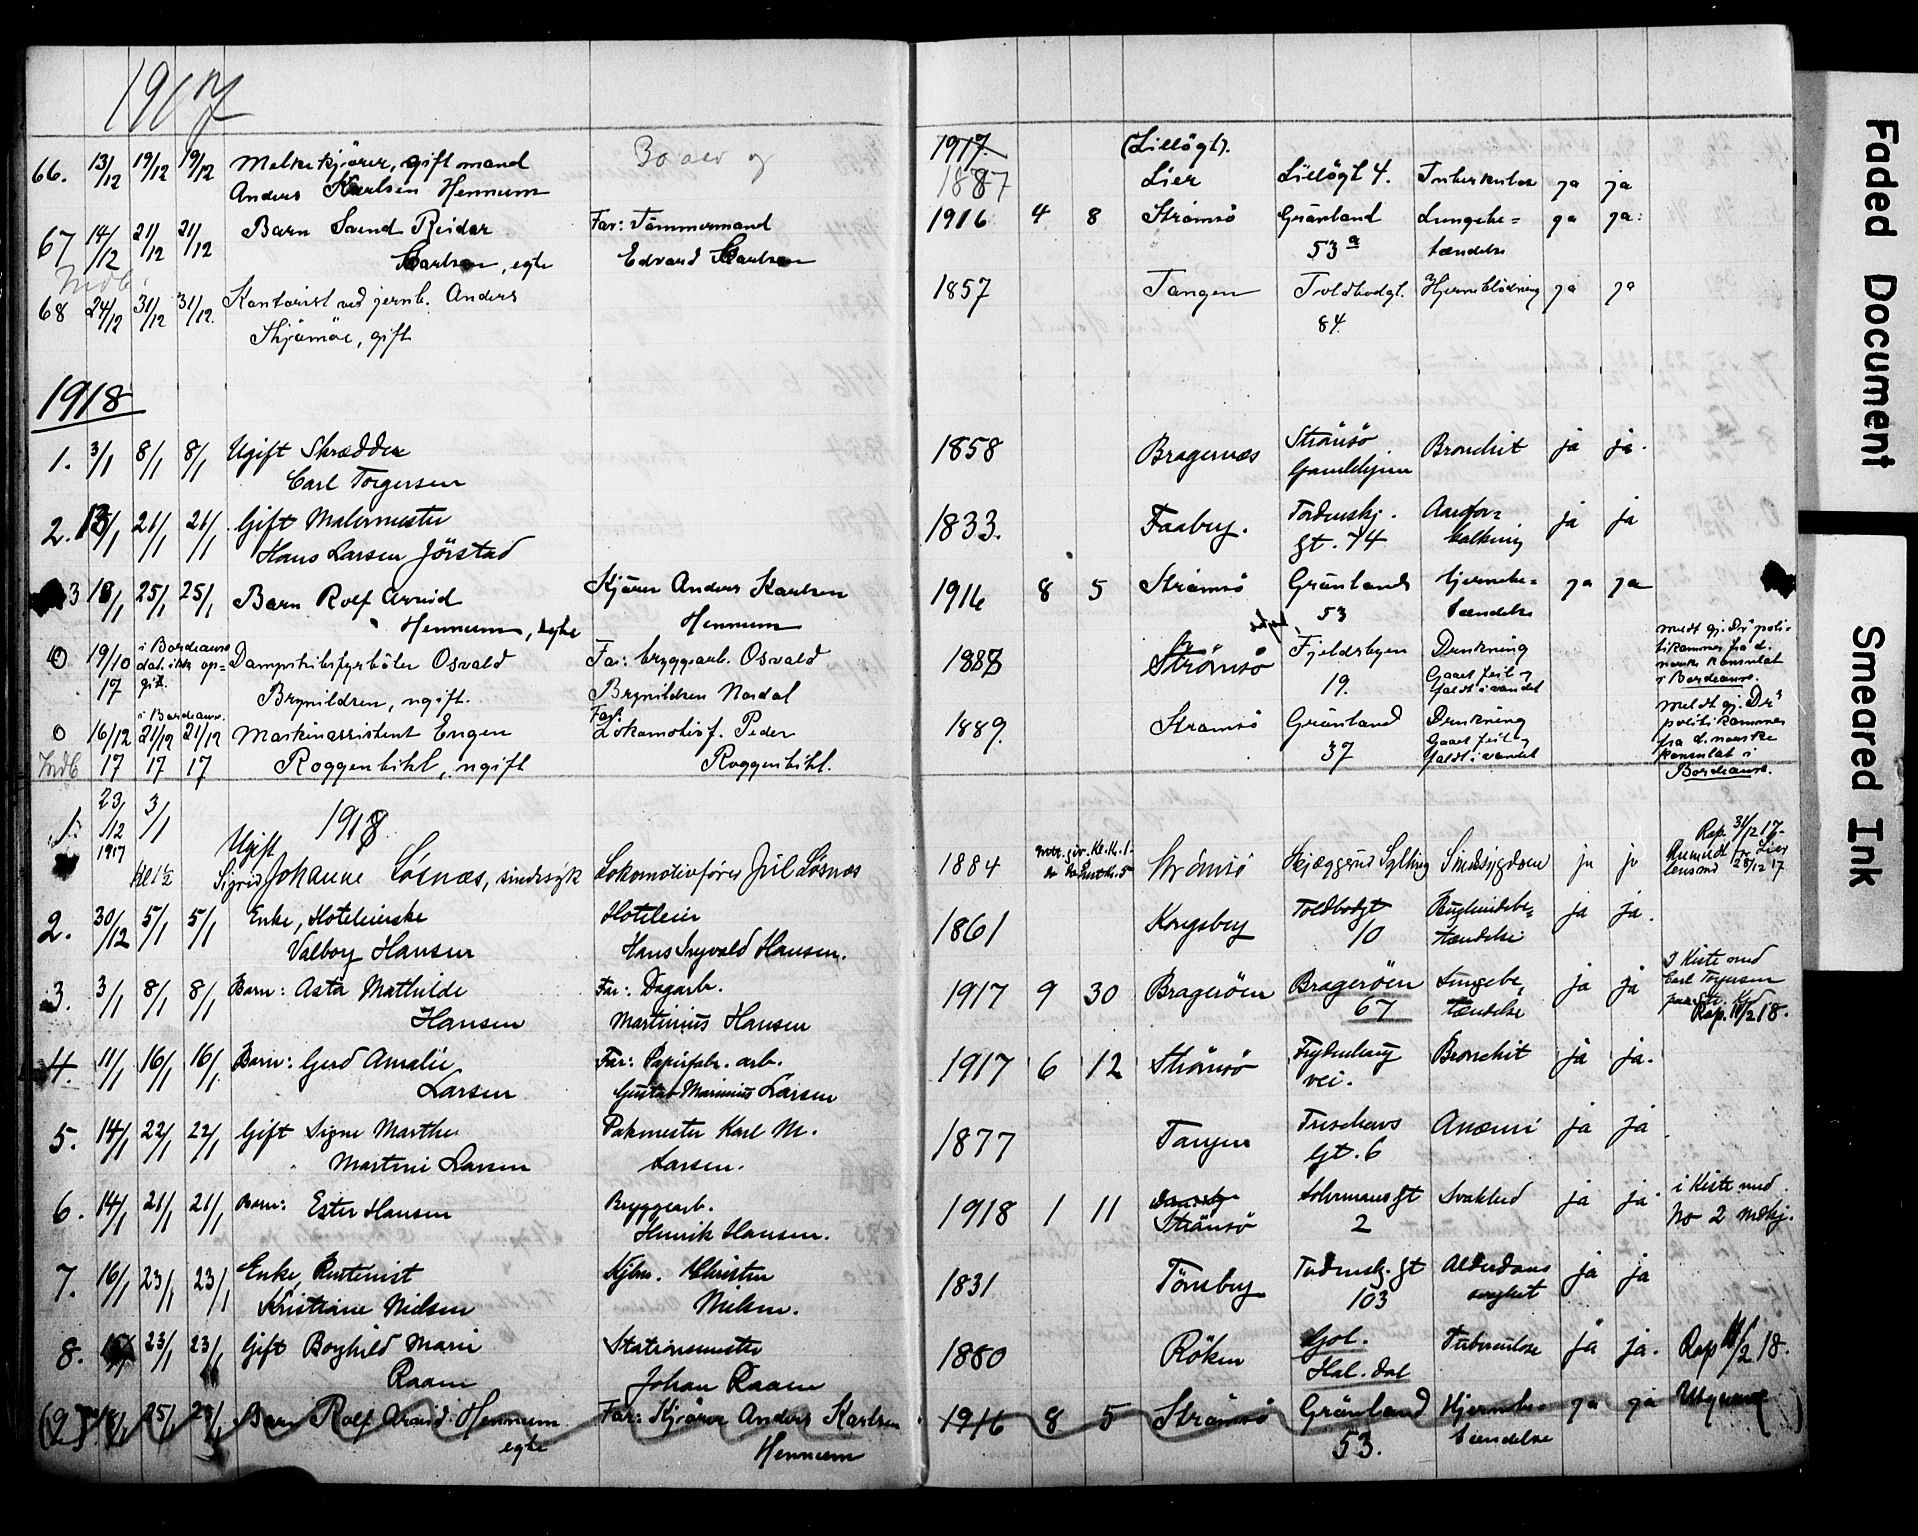 1917
66. 13/12 19/12 19/12 Melkekjører, gift mand
Anders Karlsen Hennum
1917. 1887 (Lillögt). Lier Lillögt 4. Tuberkulose ja ja
67 14/12 21/12 21/12 Barn Svend Reidar Far: Tömmermand 1916 4 8 Strømsö Grönland Lungebe= ja ja.
Karlsen, egte Edvard Karlsen 53 a tændelse
Indb.
68 24/12 31/12 31/12. Kontorist ved jernb. Anders 1857 Tangen Toldbodgt. Hjerneblödning ja ja
Skjömöe, gift 84.
1918
1. 3/1 8/1 8/1 Ugift Skrædder 1858 Bragernæs Strömsö Bronchit ja ja.
Carl Torgersen Gamlehjem
2. 15/1 21/1 21/1 Gift Malermester 1833. Faaberg. Tordenskj. Aarefor= ja ja
Hans Larsen Jörstad gt. 74 kalkning
3 18/1 25/1 25/1 Barn Rolf Arvid Kjörer Anders Karlsen 1916 8 5 Strömsö Grönland Hjernebe= ja ja
Hennum, egte Hennum 53 tændelse
0 19/10 17 i Bordeaux dat. ikke op= git. Dampskibsfyrböter Osvald Far: bryggearb. Osvald 1888 Strömsö Fjeldsbyen Drukning
Brynildsen, ugift. Brynildsen Nordal 19. Gaaet feil og faldt i vandet
meldt gj. Dr politikammer fra d. norske konsulat i Bordeaux.
0 16/12 17 i Bordeaux. 21/12 17 21/12 17 Maskinassistent Eugen Far: Lokomotivf. Peder 1889. Strömsö Grönland Drukning
Indb Roggenbihl, ugift Roggenbihl. 37 Gaaet feil og faldt i vandet
meldt gj. Dr politikammer fra d. norske konsulat i Bordeaux.
1918
1. 23/12 1917 3/1 Kl 1½ Ugift
Sigrid Johanne Løsnæs, sindssyk Lokomotivfører Juil Løsnæs 1884 Strömsö Skjæggerud Sylling Sindssygdom ja ja
Rap. 31/12 17. Anmeldt fr. Lier lensmd 28/12 17
2. 30/12 5/1 5/1 Enke, Hoteleierske Hoteleier 1861 Kongsberg Toldbodgt Bughindebe= ja ja.
Valborg Hansen Hans Ingvald Hansen. 10 tændelse
3. 3/1 8/1 8/1 Barn: Asta Mathilde Far: Dagarb. 1917 9 30 Bragerøen Bragerøen Lungebe= ja ja
Hansen Martinius Hansen 67 tændelse
I Kiste med Carl Torgersen
Rap. 11/2 18.
4. 11/1 16/1 16/1. Barn: Gerd Amalie Far: Papirfabr. arb. 1917 6 12 Strömsö Frydenhaug Bronchit ja ja.
Larsen Gustav Marinius Larsen vei.
5. 14/1 22/1 22/1 Gift Signe Marthe Pakmester Karl M. 1877 Tangen Treschows Anæmi ja ja
Martine Larsen Larsen. Gt. 6
6. 14/1 21/1 21/1 Barn: Ester Hansen Bryggearb. 1918 1 11 Strömsö Svakhed ja ja
Henrik Hansen. 2
i Kiste med No 2 mskj.
7. 16/1 23/1 23/1 Enke, Rentenist Kjbm. Christen 1831 Tönsberg Tordensk. gt Alderdoms ja ja
Kristiane Nielsen Nielsen. 103 svaghet
8. 23/1 23/1 Gift Borghild Marie Stationsmester 1880 Röken Gol. Tuberculose ja ja. Rap 11/2 18.
Raaen Johan Raaen Hal. dal
(9) 18/1 25/1 25/1 Barn Rolf Arvid Hennum Far: Kjörer Anders Karlsen 1916 8 5 Strömsö Grönland Hjernebe= ja ja
egte Hennum 53. tændelse
Faded Document
Smeared Ink